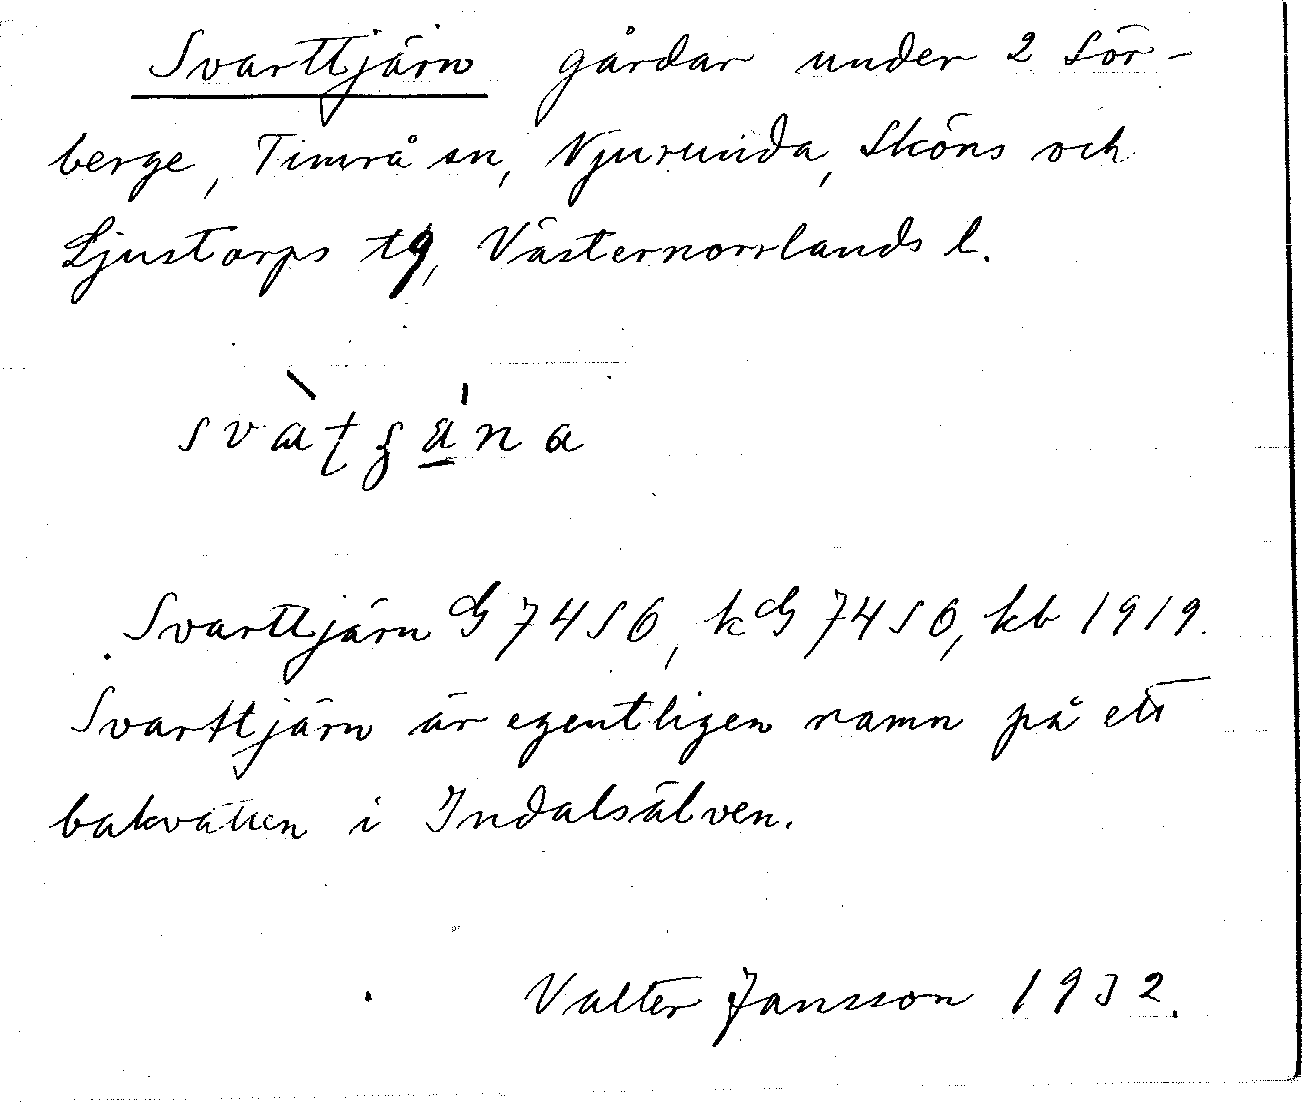 Svarttjärn gårdar under 2 Sör-
berge, Timrå sn, Njurunda, Sköns och
Ljustorps tg, Västernorrlands l.
svàtʂä́na
Svarttjärn G 7456, kG 7456, kb 1919.
Svarttjärn är egentligen namn på ett
bakvatten i Indalsälven.
Valter Jansson 1932.